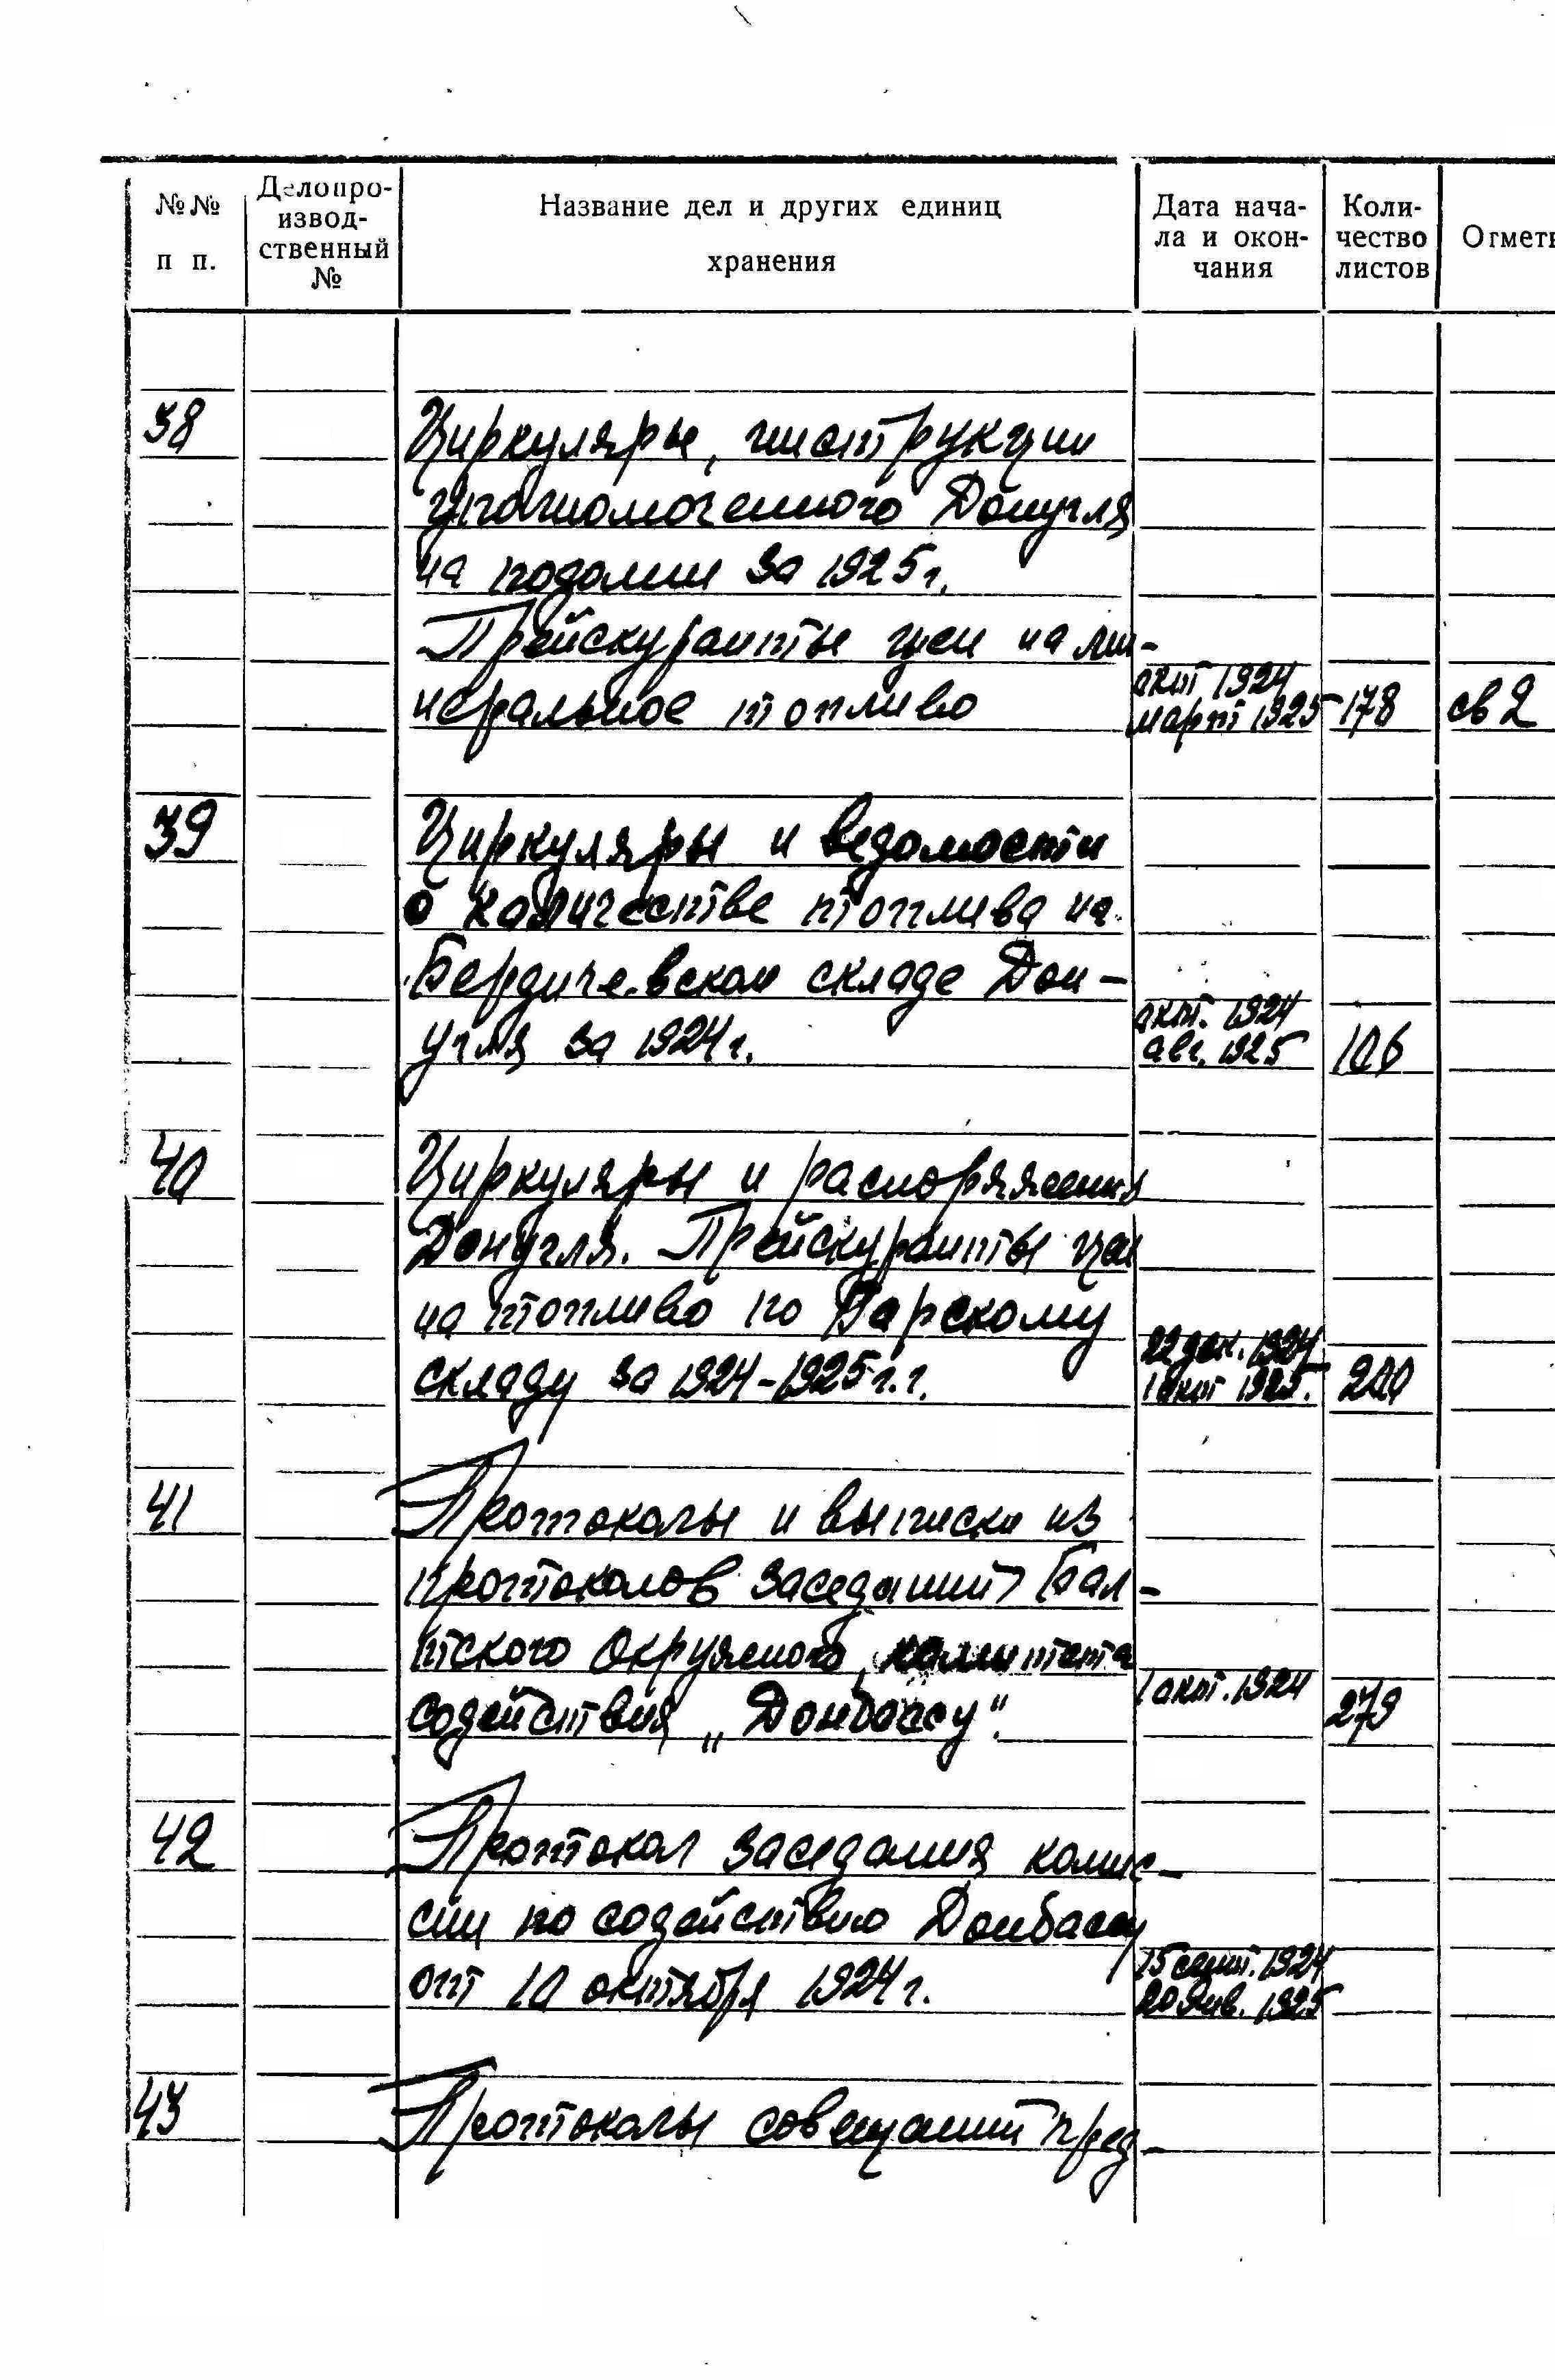 №№ п п.
Делопро-
извод-
ственный
№
Название дел и других единиц
хранения
Дата нача-
ла и окон-
чания
Коли-
чество
листов
Отметк
38
Циркуляры, инструкции
уполномоченного Донугля
на
за 1925 г.
Прейскуранты цен на ми-
неральное топливо
окт 1924
март 1925
178
св 2
39
Циркуляры и ведомости
о количестве топлива на
Бердичевском складе Дон-
угля за 1924 г.
окт. 1924
авг. 1925
106
40
Циркуляры и распоряжения
Донугля. Прейскуранты цен
на топливо по
складу за 1924-1925 г.г.
22 дек. 1924
1 окт 1925.
200
41
Протоколы и выписки из
протоколов заседаний Бал-
тского окружного комитета
содействия „Донбассу".
1 окт. 1924
279
42
Протокол заседания комис-
сии по содействию Донбассу
от 10 октября 1924 г.
15 сент. 1924
20 янв. 1925
43
Протоколы совещаний пред-